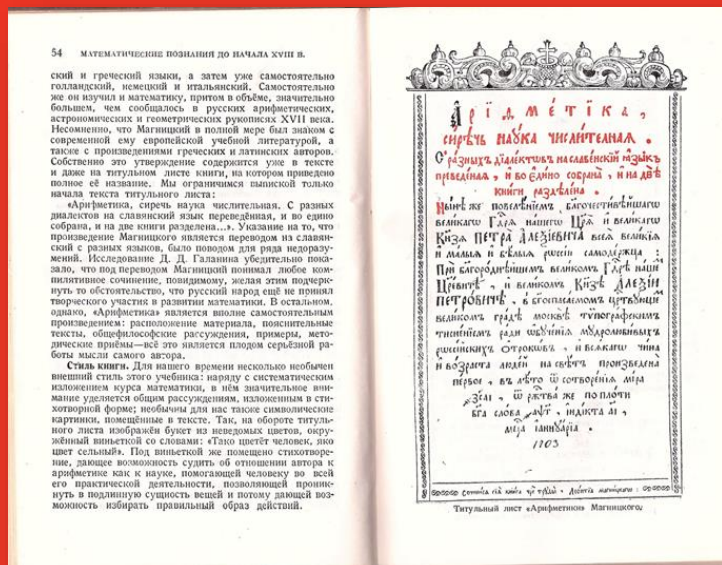 54 МАТЕМАТИЧЕСКИЕ ПОЗНАНИЯ ДО НАЧАЛА XVIII В.
ский и греческий языки, а затем уже самостоятельно
голландский, немецкий и итальянский. Самостоятельно
же он изучил и математику, притом в объёме, значительно
большем, чем сообщалось в русских арифметических,
астрономических и геометрических рукописях XVII века.
Несомненно, что Магницкий в полной мере был знаком с
современной ему европейской учебной литературой, а
также с произведениями греческих и латинских авторов.
Собственно это утверждение содержится уже в тексте
и даже на титульном листе книги, на котором приведено
полное её название. Мы ограничимся выпиской только
начала текста титульного листа:
«Арифметика, сиречь наука числительная. С разных
диалектов на славянский язык переведённая, и во едино
собрана, и на две книги разделена...». Указание на то, что
произведение Магницкого является переводом на славян-
ский с разных языков, было поводом для ряда недоразу-
мений. Исследование Д. Д. Галанина убедительно пока-
зало, что под переводом Магницкий понимал любое ком-
пилятивное сочинение, повидимому, желая этим подчерк-
нуть то обстоятельство, что русский народ ещё не принял
творческого участия в развитии математики. В остальном,
однако, «Арифметика» является вполне самостоятельным
произведением: расположение материала, пояснительные
тексты, общефилософские рассуждения, примеры, мето-
дические приёмы—всё это является плодом серьёзной ра-
боты мысли самого автора.
Стиль книги. Для нашего времени несколько необычен
внешний стиль этого учебника: наряду с систематическим
изложением курса математики, в нём значительное вни-
мание уделяется общим рассуждениям, изложенным в сти-
хотворной форме; необычны для нас также символические
картинки, помещённые в тексте. Так, на обороте титуль-
ного листа изображён букет из неведомых цветов, окру-
жённый виньеткой со словами: «Тако цветёт человек, яко
цвет сельный». Под виньеткой же помещено стихотворе-
ние, дающее возможность судить об отношении автора к
арифметике как к науке, помогающей человеку во всей
его практической деятельности, позволяющей проник-
нуть в подлинную сущность вещей и потому дающей воз-
можность избирать правильный образ действий.
Арїѳметїка,
сирѣчь наука числителная.
С разныхъ дїалектовъ на славенскїй ꙗзыкъ
преведеная, и во едино собрана, и на двѣ
книги раздѣлена.
Нынѣ же повелѣнїемъ, благочестивѣйшагѡ
великагѡ Гдⷭ҇рѧ нашегѡ Црѧ̀ и великагѡ
Кнзѧ ПЕТРА АЛЕѮЇЕВИЧА всеѧ великїѧ
и малыѧ и бѣлыѧ рѡссїи самодержца:
При благороднѣйшемъ великомъ Гдⷭ҇рѣ нашемъ
Црвичѣ, и великомъ Кнзѣ АЛЕѮЇИ
ПЕТРОВИЧѢ, в бгоспасаемом црствующемъ
великомъ градѣ москвѣ тѵпографскимъ
тисненїемъ ради ѡбученїѧ мудролюбивыхъ
рѡссїйскихъ отрокѡвъ, и всѧкагѡ чина
и возраста людей на свѣтъ произведена
первое, въ лѣто ѿ сотворенїѧ мїра
҂зсаі, ѿ рѫтва же по плоти
бга слова ҂аѱг, індїкта аі,
мцⷭ҇а іаннуарїа.
1703
Титульный лист «Арифметики» Магницкого.